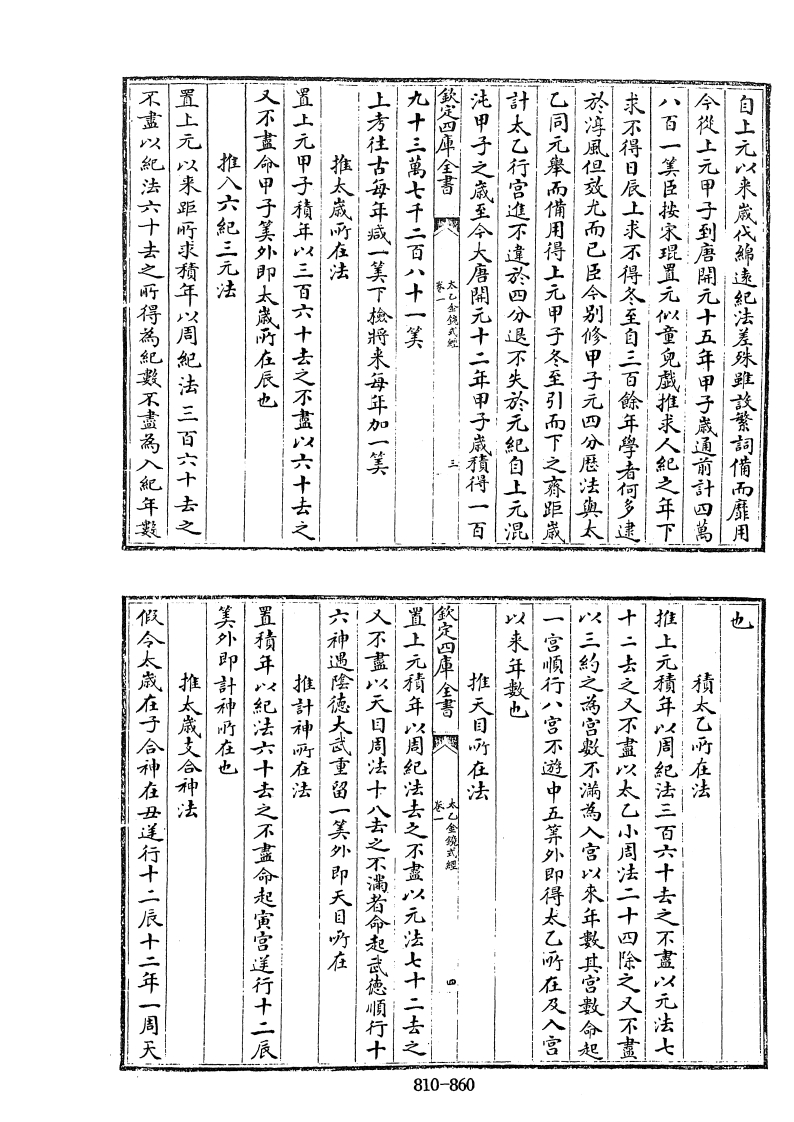 自上元以来歳代綿遠紀法差殊雖設繁詞備而靡用
今從上元甲子到唐開元十五年甲子歳通前計四萬
八百一筭臣按宋琨置元似童兒戲推求人紀之年下
求不得日辰上求不得冬至自三百餘年學者何多逮
於淳風但效尤而已臣今别修甲子元四分歴法與太
乙同元舉而備用得上元甲子冬至引而下之齋距歳
計太乙行宫進不違於四分退不失於元紀自上元混
沌甲子之歳至今大唐開元十二年甲子歳積得一百
欽定四庫全書
太乙金鏡式經
卷一
三
九十三萬七千二百八十一筭
上考往古每年減一筭下檢將来每年加一筭
推太歳所在法
置上元甲子積年以三百六十去之不盡以六十去之
又不盡命甲子筭外即太歳所在辰也
推入六紀三元法
置上元以来距所求積年以周紀法三百六十去之
不盡以紀法六十去之所得為紀數不盡為入紀年數
也
積太乙所在法
推上元積年以周紀法三百六十去之不盡以元法七
十二去之又不盡以太乙小周法二十四除之又不盡
以三約之為宫數不滿為入宫以来年數其宫數命起
一宫順行八宫不遊中五筭外即得太乙所在及入宫
以来年數也
推天目所在法
欽定四庫全書
太乙金鏡式經
卷一
四
置上元積年以周紀法去之不盡以元法七十二去之
又不盡以天目周法十八去之不滿者命起武徳順行十
六神遇陰徳大武重留一筭外即天目所在
推計神所在法
置積年以紀法六十去之不盡命起寅宫逆行十二辰
筭外即計神所在也
推太歳支合神法
假令太歳在子合神在丑逆行十二辰十二年一周天
810-860